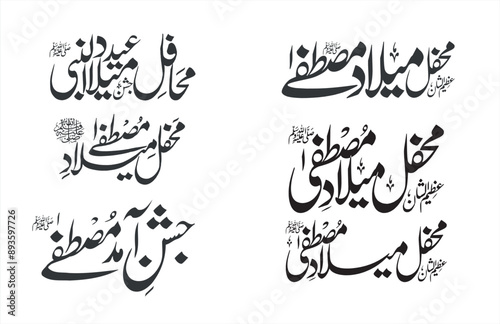 محافل جشن عید میلاد النبی ﷺ
محفل میلادِ مصطفےٰ ﷺ
جشنِ آمدِ مصطفےٰ ﷺ
عظیم الشان محفل میلادِ مصطفےٰ ﷺ
عظیم الشان محفل میلادِ مصطفیٰ ﷺ
عظیم الشان محفل میلادِ مصطفیٰ ﷺ
Adobe Stock | #893597726